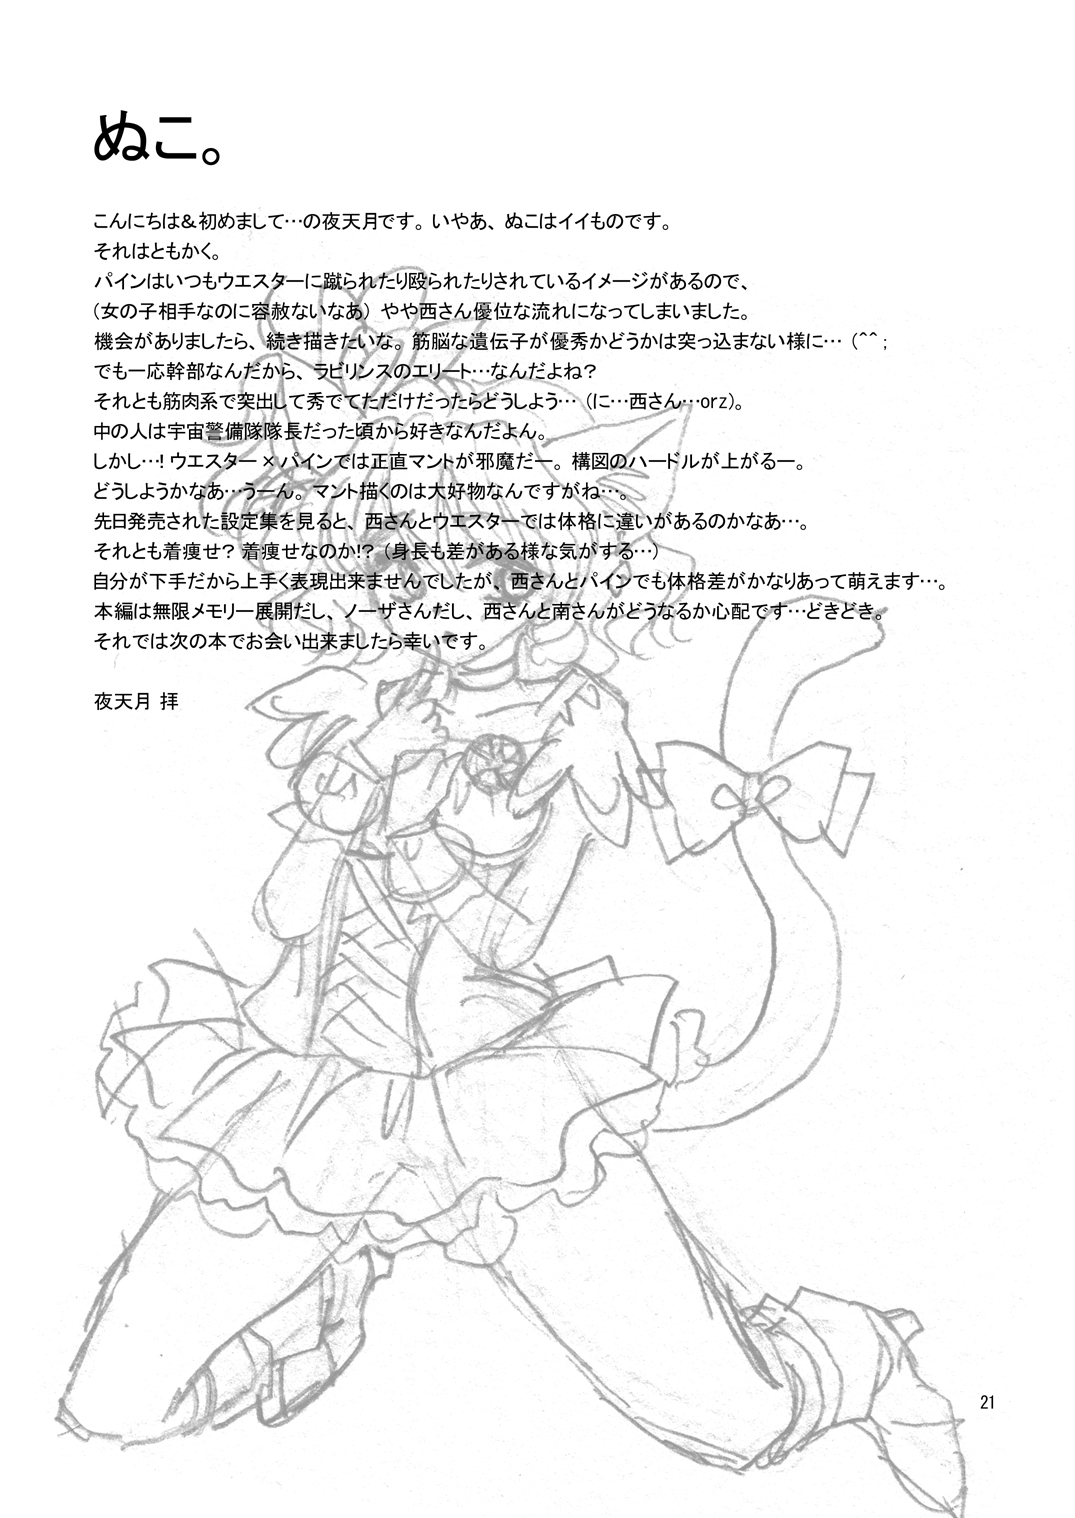 ぬこ。
こんにちは＆初めまして…の夜天月です。いやあ、ぬこはイイものです。
それはともかく。
パインはいつもウエスターに蹴られたり殴られたりされているイメージがあるので、
（女の子相手なのに容赦ないなあ）やや西さん優位な流れになってしまいました。
機会がありましたら、続き描きたいな。筋脳な遺伝子が優秀かどうかは突っ込まない様に…（^^；
でも一応幹部なんだから、ラビリンスのエリート…なんだよね？
それとも筋肉系で突出して秀でてただけだったらどうしよう…（に…西さん…orz）。
中の人は宇宙警備隊隊長だった頃から好きなんだよん。
しかし…！ウエスター×パインでは正直マントが邪魔だー。構図のハードルが上がるー。
どうしようかなあ…うーん。マント描くのは大好物なんですがね…。
先日発売された設定集を見ると、西さんとウエスターでは体格に違いがあるのかなあ…。
それとも着痩せ？着痩せなのか!?（身長も差がある様な気がする…）
自分が下手だから上手く表現出来ませんでしたが、西さんとパインでも体格差がかなりあって萌えます…。
本編は無限メモリー展開だし、ノーザさんだし、西さんと南さんがどうなるか心配です…どきどき。
それでは次の本でお会い出来ましたら幸いです。
夜天月 拝
21